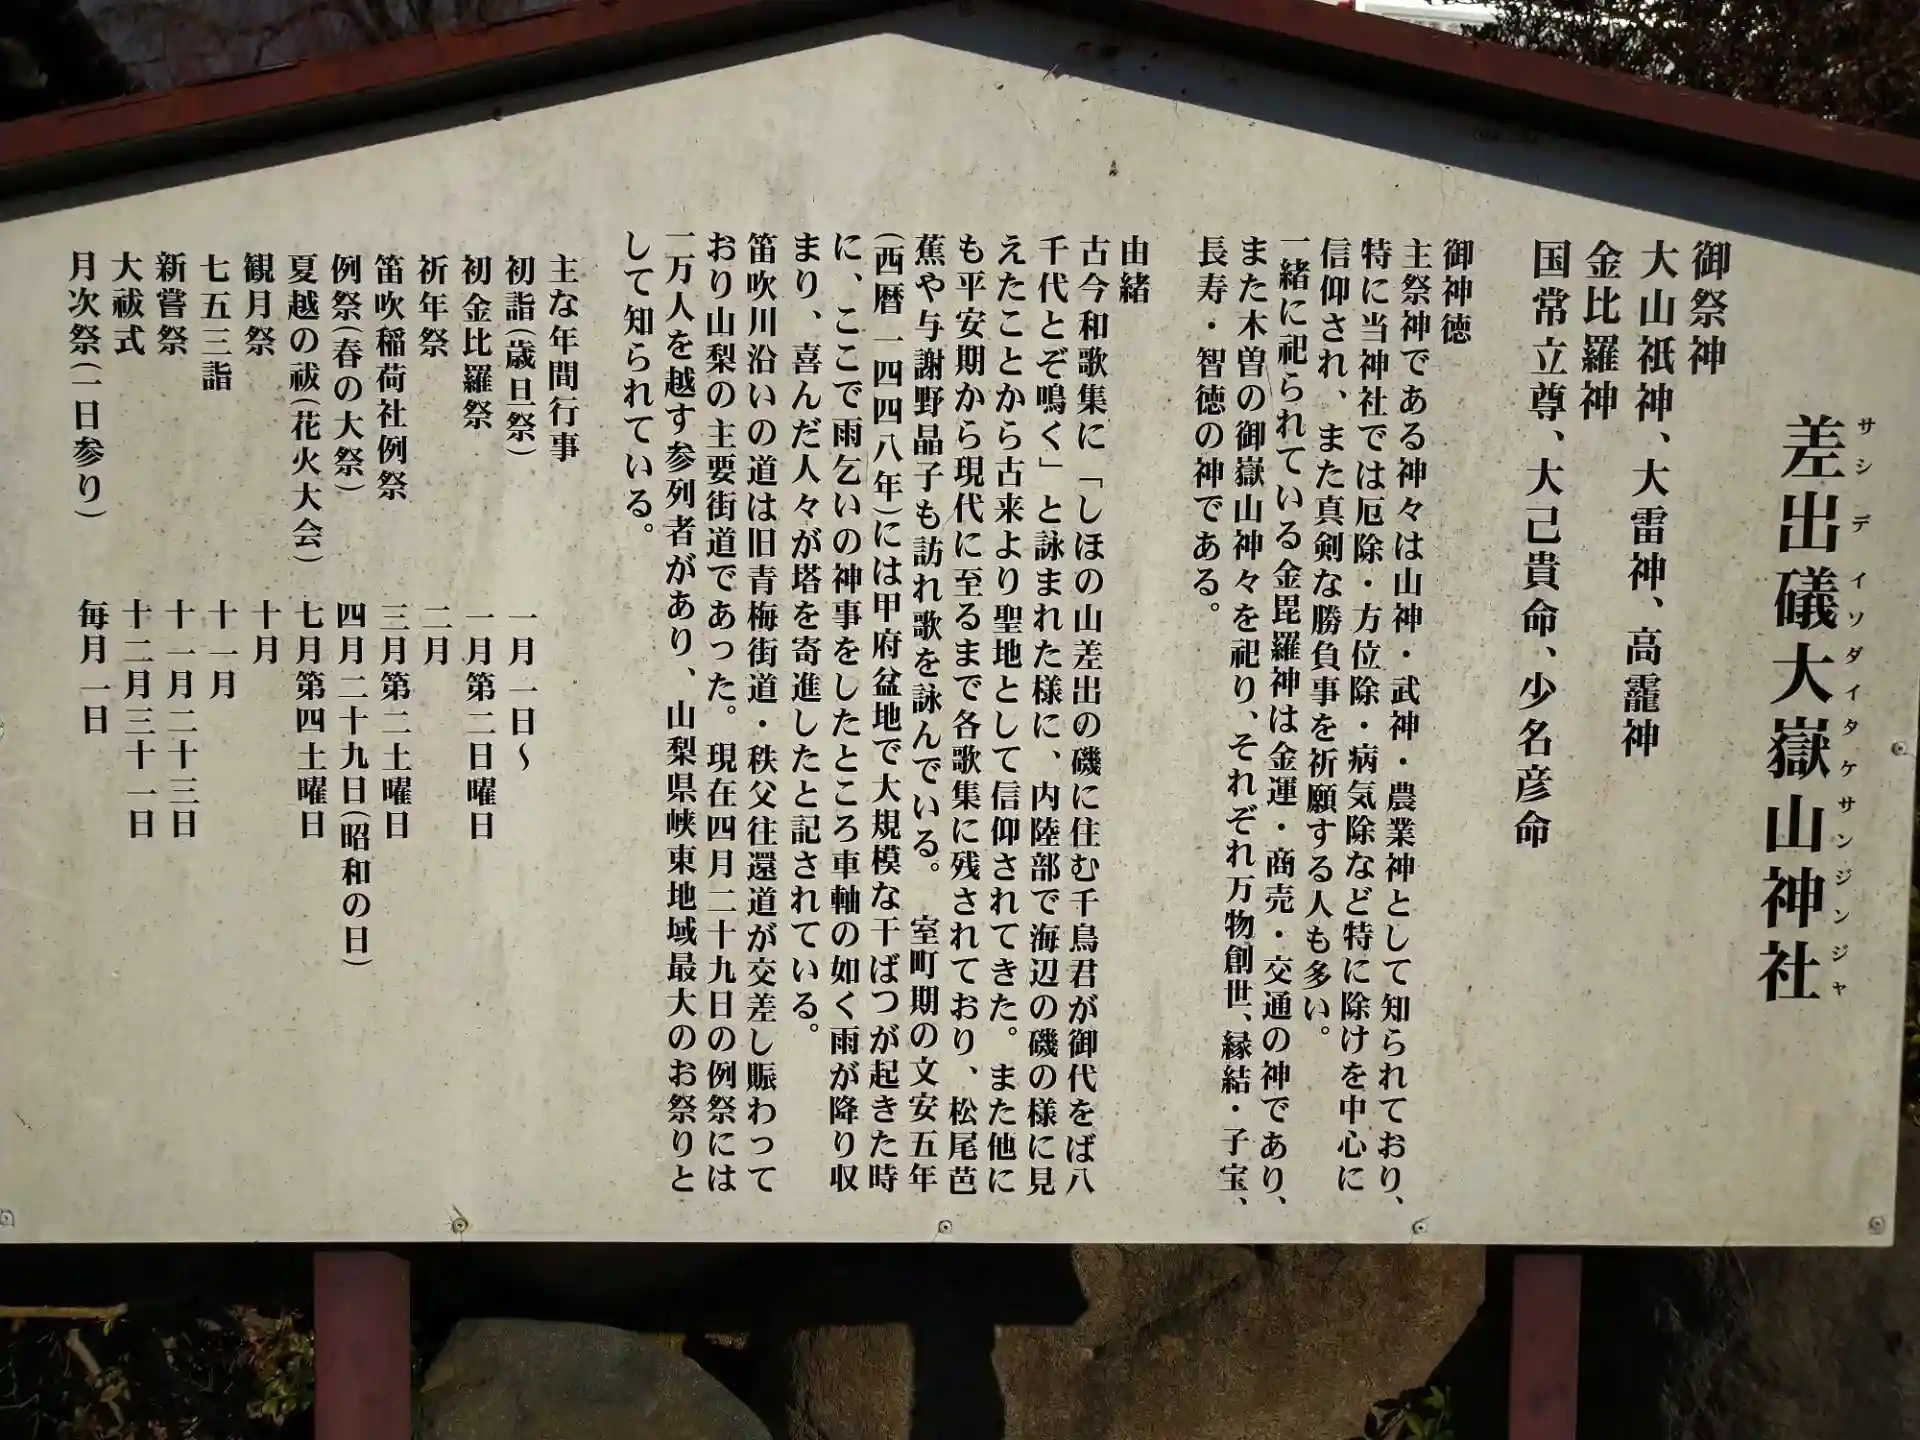 差出磯大嶽山神社
サシデイソダイタケサンジンジャ
御祭神
大山祇神、大雷神、高龗神
金比羅神
国常立尊、大己貴命、少名彦命
御神徳
主祭神である神々は山神・武神・農業神として知られており、
特に当神社では厄除・方位除・病気除など特に除けを中心に
信仰され、また真剣な勝負事を祈願する人も多い。
一緒に祀られている金毘羅神は金運・商売・交通の神であり、
また木曽の御嶽山神々を祀り、それぞれ万物創世、縁結・子宝、
長寿・智徳の神である。
由緒
古今和歌集に「しほの山差出の磯に住む千鳥君が御代をば八
千代とぞ鳴く」と詠まれた様に、内陸部で海辺の磯の様に見
えたことから古来より聖地として信仰されてきた。また他に
も平安期から現代に至るまで各歌集に残されており、松尾芭
蕉や与謝野晶子も訪れ歌を詠んでいる。室町期の文安五年
(西暦一四四八年)には甲府盆地で大規模な干ばつが起きた時
に、ここで雨乞いの神事をしたところ車軸の如く雨が降り収
まり、喜んだ人々が塔を寄進したと記されている。
笛吹川沿いの道は旧青梅街道・秩父往還道が交差し賑わって
おり山梨の主要街道であった。現在四月二十九日の例祭には
一万人を越す参列者があり、山梨県峡東地域最大のお祭りと
して知られている。
主な年間行事
初詣(歳旦祭) 一月一日〜
初金比羅祭 一月第二日曜日
祈年祭 二月
笛吹稲荷社例祭 三月第二土曜日
例祭(春の大祭) 四月二十九日(昭和の日)
夏越の祓(花火大会) 七月第四土曜日
観月祭 十月
七五三詣 十一月
新嘗祭 十一月二十三日
大祓式 十二月三十一日
月次祭(一日参り) 毎月一日